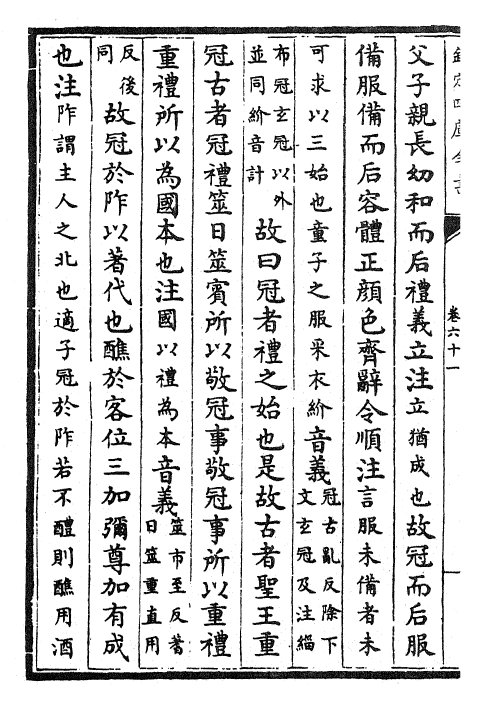 欽定四庫全書
卷六十一
父子親長幼和而后禮義立注立猶成也故冠而后服
備服備而后容體正顔色齊辭令順注言服未備者未
可求以三始也童子之服采衣紒音義冠古亂反除下
文玄冠及注緇
布冠玄冠以外
並同紒音計故曰冠者禮之始也是故古者聖王重
冠古者冠禮筮日筮賓所以敬冠事敬冠事所以重禮
重禮所以為國本也注國以禮為本音義筮市至反蓍
日筮重直用
反後
同故冠於阼以著代也醮於客位三加彌尊加有成
也注阼謂主人之北也適子冠於阼若不醴則醮用酒